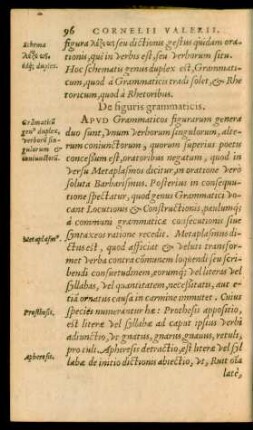 96 CORNELII VALERII.
figura λέξεως seu dictionis gestus quidam oratio-
nis, qui in verbis est, seu verborum situ.
Hoc schematu genus duplex est, Grammati-
cum, quod à Grammaticis tradi solet, & Rhe-
toricum, quod à Rhetoribus.
De figuris grammaticis.
APVD Grammaticos figurarum genera
duo sunt, vnum verborum singulorum, alte-
rum coniunctorum, quorum superius poetis
concessum est, oratoribus negatum, quod in
versu Metaplasmos dicitur, in oratione verò
soluta Barbarismus. Posterius in consequu-
tione spectatur, quod genus Grammatici vo-
cant Locutionis & Constructionis, paulumq;
à communi grammaticæ consecutionis siue
syntaxeos ratione recedit. Metaplasmus di-
ctus est, quod afficiat & veluti transfor-
met verba contra communem loquendi seu scri-
bendi consuetudinem, eorumq; vel literas vel
syllabas, vel quantitatem, necessitatis, aut e-
tiā ornatus causa in carmine immutet. Cuius
species numerantur hæ: Prosthesis appositio,
est literæ vel syllabæ ad caput ipsius verbi
adiunctio, vt gnatus, gnarus gnauus, retuli,
pro tuli. Apheresis detractio, est literæ vel syl-
labæ de initio dictionis abiectio, vt, Ruit oīa
latè,
Schema
λέξεως,
duplex.
Grāmaticū
genus duplex,
verborū sin-
gulorum &
coniunctorū.
Metaplasmus.
Prosthesis.
Apheresis.